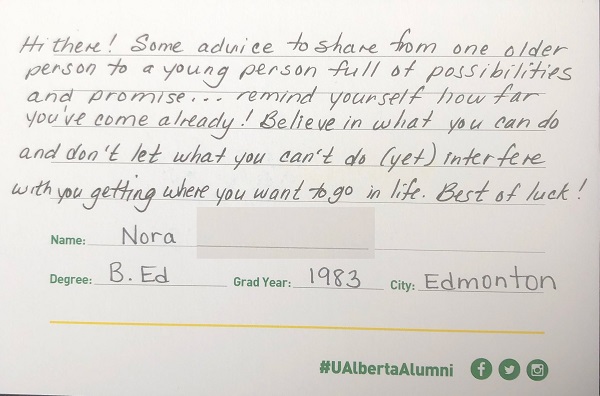 Hi there! Some advice to share from one older
person to a young person full of possibilities
and promise... remind yourself how far
you've come already! Believe in what you can do
and don't let what you can't do (yet) interfere
with you getting where you want to go in life. Best of luck!
Name: Nora
Degree: B. Ed Grad Year: 1983 City: Edmonton
#UAlbertaAlumni